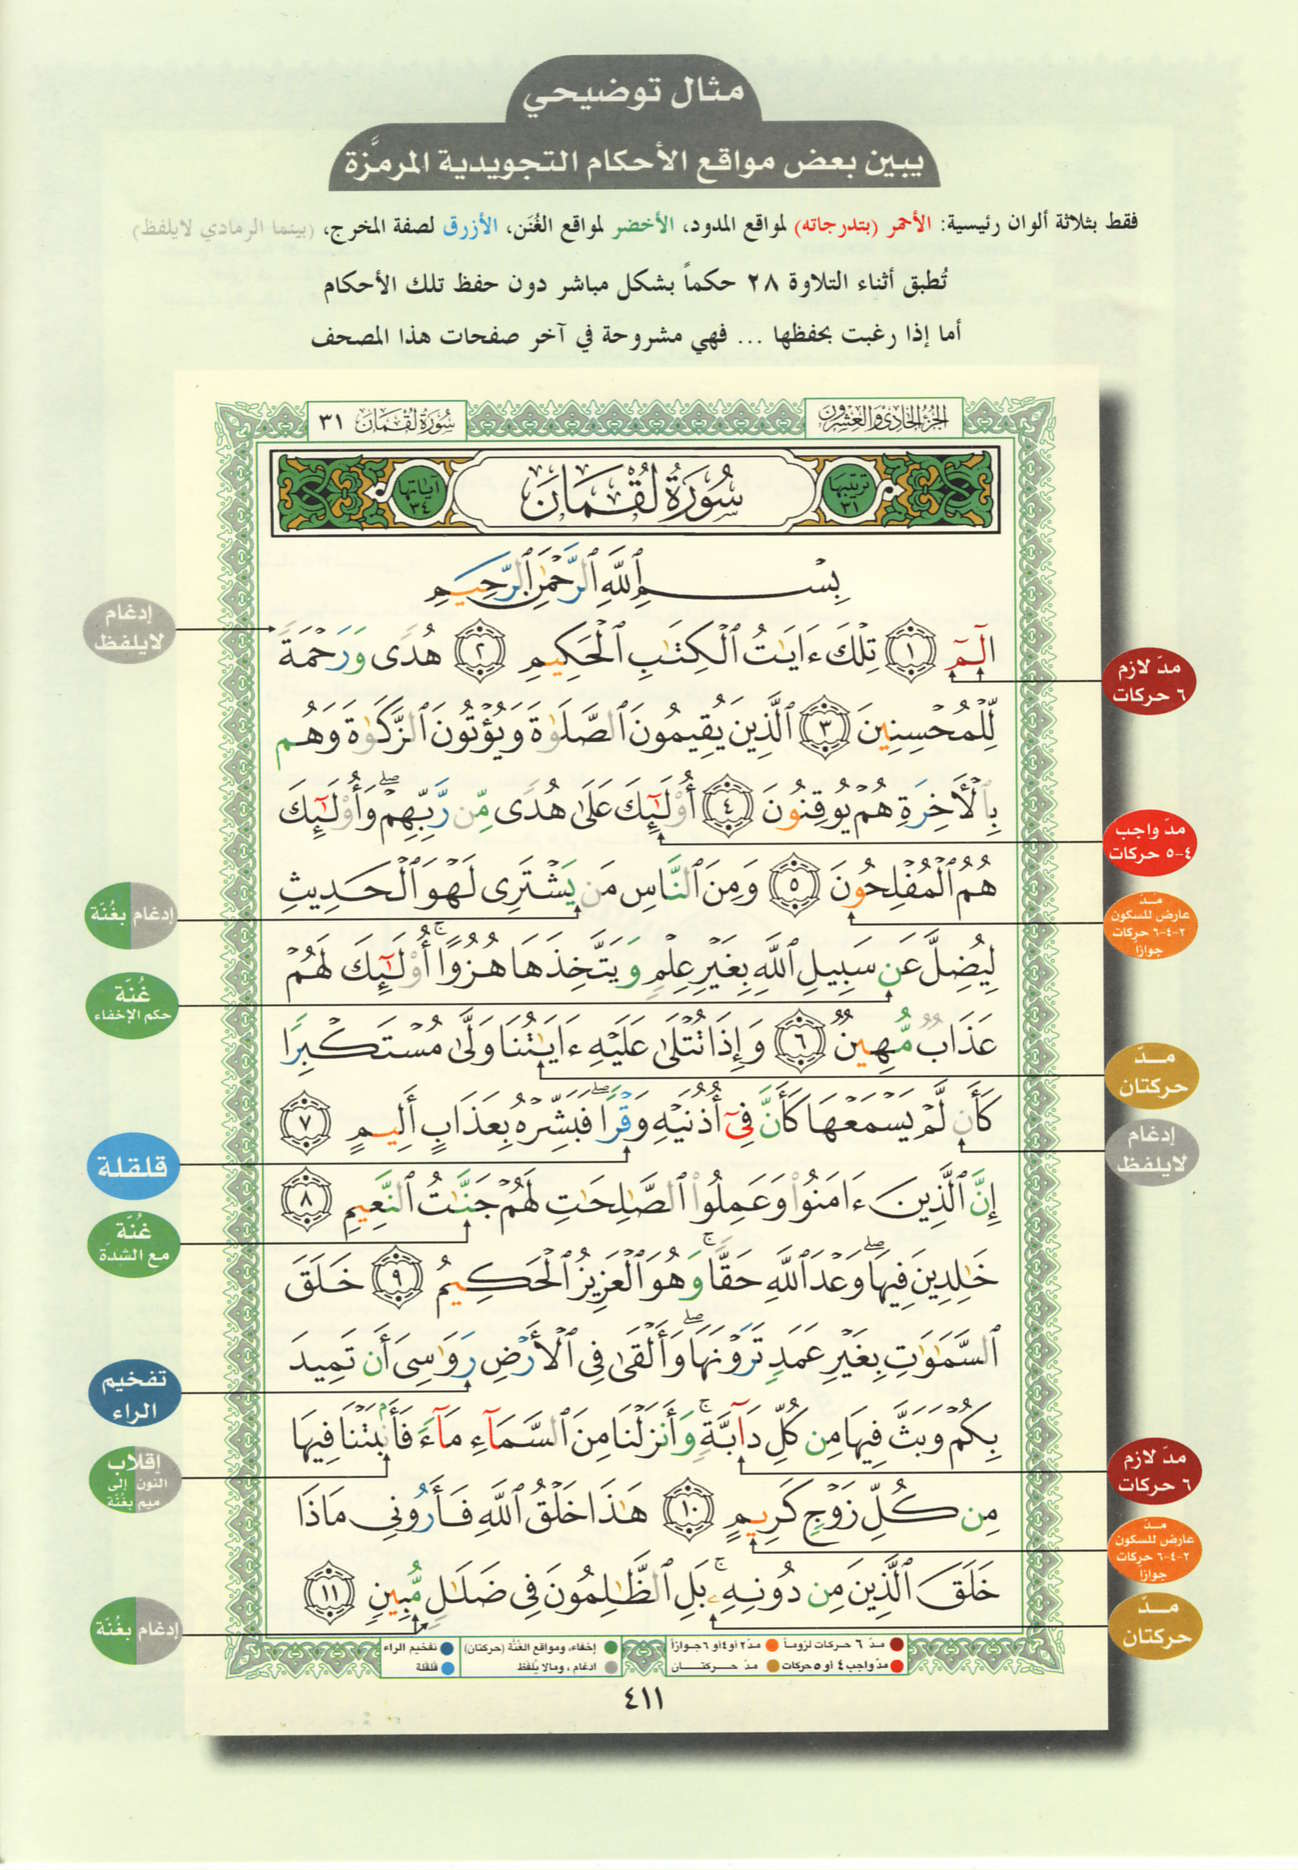 مثال توضيحي
يبين بعض مواقع الأحكام التجويدية المرمَّزة
فقط بثلاثة ألوان رئيسية: الأحمر (بتدرجاته) لمواقع المدود، الأخضر لمواقع الغُنَن، الأزرق لصفة المخرج، (بينما الرمادي لايلفظ)
تُطبق أثناء التلاوة ٢٨ حكماً بشكل مباشر دون حفظ تلك الأحكام
أما إذا رغبت بحفظها ... فهي مشروحة في آخر صفحات هذا المصحف
الجزء الحادي والعشرون
سورة لقمان ٣١
ترتيبها ٣١
سُورَةُ لُقْمَانَ
آياتها ٣٤
بِسْمِ ٱللَّهِ ٱلرَّحْمَٰنِ ٱلرَّحِيمِ
الٓمٓ ١ تِلْكَ ءَايَٰتُ ٱلْكِتَٰبِ ٱلْحَكِيمِ ٢ هُدًى وَرَحْمَةً
لِّلْمُحْسِنِينَ ٣ ٱلَّذِينَ يُقِيمُونَ ٱلصَّلَوٰةَ وَيُؤْتُونَ ٱلزَّكَوٰةَ وَهُم
بِٱلْأَخِرَةِ هُمْ يُوقِنُونَ ٤ أُوْلَٰٓئِكَ عَلَىٰ هُدًى مِّن رَّبِّهِمْ ۖ وَأُوْلَٰٓئِكَ
هُمُ ٱلْمُفْلِحُونَ ٥ وَمِنَ ٱلنَّاسِ مَن يَشْتَرِى لَهْوَ ٱلْحَدِيثِ
لِيُضِلَّ عَن سَبِيلِ ٱللَّهِ بِغَيْرِ عِلْمٍ وَيَتَّخِذَهَا هُزُوًا ۚ أُوْلَٰٓئِكَ لَهُمْ
عَذَابٌ مُّهِينٌ ٦ وَإِذَا تُتْلَىٰ عَلَيْهِ ءَايَٰتُنَا وَلَّىٰ مُسْتَكْبِرًا
كَأَن لَّمْ يَسْمَعْهَا كَأَنَّ فِىٓ أُذُنَيْهِ وَقْرًا ۖ فَبَشِّرْهُ بِعَذَابٍ أَلِيمٍ ٧
إِنَّ ٱلَّذِينَ ءَامَنُواْ وَعَمِلُواْ ٱلصَّٰلِحَٰتِ لَهُمْ جَنَّٰتُ ٱلنَّعِيمِ ٨
خَٰلِدِينَ فِيهَا ۖ وَعْدَ ٱللَّهِ حَقًّا ۚ وَهُوَ ٱلْعَزِيزُ ٱلْحَكِيمُ ٩ خَلَقَ
ٱلسَّمَٰوَٰتِ بِغَيْرِ عَمَدٍ تَرَوْنَهَا ۖ وَأَلْقَىٰ فِى ٱلْأَرْضِ رَوَٰسِىَ أَن تَمِيدَ
بِكُمْ وَبَثَّ فِيهَا مِن كُلِّ دَآبَّةٍ ۚ وَأَنزَلْنَا مِنَ ٱلسَّمَآءِ مَآءً فَأَنۢبَتْنَا فِيهَا
مِن كُلِّ زَوْجٍ كَرِيمٍ ١٠ هَٰذَا خَلْقُ ٱللَّهِ فَأَرُونِى مَاذَا
خَلَقَ ٱلَّذِينَ مِن دُونِهِۦ ۚ بَلِ ٱلظَّٰلِمُونَ فِى ضَلَٰلٍ مُّبِينٍ ١١
مدّ لازم
٦ حركات
مدّ واجب
٤-٥ حركات
مدّ
عارض للسكون
٢-٤-٦ حركات
جوازاً
مـــدّ
حركتان
إدغام
لايلفظ
مدّ لازم
٦ حركات
مدّ
عارض للسكون
٢-٤-٦ حركات
جوازاً
مـــدّ
حركتان
إدغام
لايلفظ
إدغام بغُنّة
غُنّة
حكم الإخفاء
قلقلة
غُنّة
مع الشدّة
تفخيم
الراء
إقلاب
النون إلى
ميم بغُنّة
إدغام بغُنّة
مدّ ٦ حركات لزوماً
مدّ ٢ أو ٤ أو ٦ جوازاً
إخفاء، ومواقع الغُنَّة (حركتان)
تفخيم الراء
مدّ واجب ٤ أو ٥ حركات
مدّ حــركتــــان
ادغام ، ومالا يُلفظ
قلقلة
٤١١